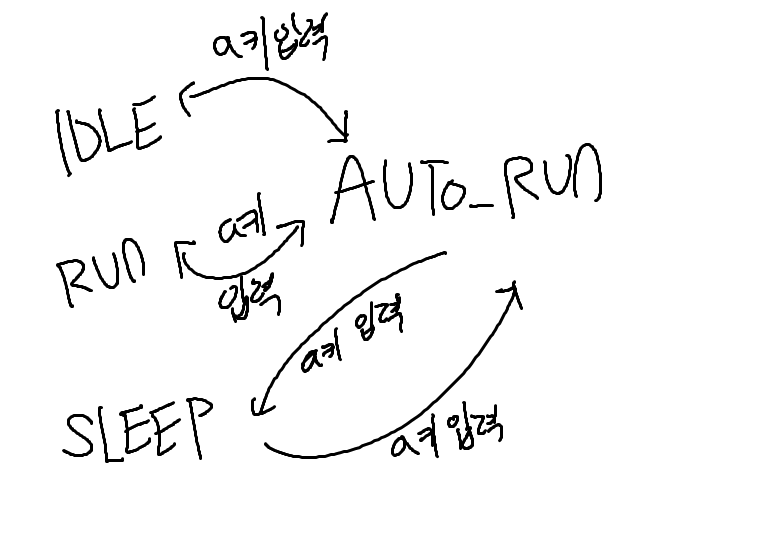 a키 입력
IDLE
AUTO_RUN
RUN
a키
입력
a키 입력
SLEEP
a키 입력